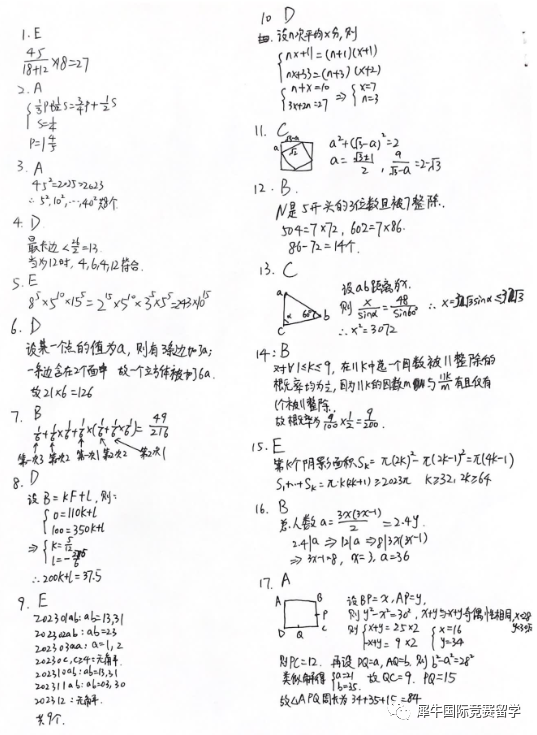 1. E
45/(18+12) ×18=27
2. A
{ 1/3P+1/2S=3/4P+1/2S
S=1/4
3. A
45²=2025>2023
∴ 5²,10²,…,40²
4. D.
最长边<26/2=13.
当为12时, 4,6,4,12符合.
5. E
8⁵×5¹⁰×15⁵=2¹⁵×5¹⁰×3⁵×5⁵=243×10¹⁵
6. D
设某一个点的值为a, 则有3条边加3a;
一条边含在2个面中 故一个立方体被加6a.
故21×6=126
7. B
1/6+1/6×1/6+1/6×(1/6+1/6×1/6)=49/216
第一次3 第一次2 第一次1 第二次2 第二次1
8. D
设B=kF+l, 则:
{ 0=110k+l
100=350k+l
⇒ { k=5/12
∴200k+l=37.5
9. E
202301ab: ab=13,31
202302ab: ab=23
202303aa: a=1,2
202310ab: ab=13,31
202311ab: ab=03,30
202312: 无解.
共9个.
10 D
设n次平均x分, 则
{ nx+11=(n+1)(x+1)
nx+33=(n+3)(x+2)
{ n+x=10
3x+2n=27 ⇒ { x=7
n=3
11. C
√3-a
a
√2
a²+(√3-a)²=2
a=(√3+1)/2 , a/(√3-a)=2-√3
12. B.
N是5开头的3位数且被7整除.
504=7×72, 602=7×86.
86-72=14个.
13. C
a
b
c
α
60°
设ab距离为x.
则 x/sinα=48/sin60° ∴
∴ x²=3072
14: B
对∀1≤k≤9, 在11k中选一个因数被11整除的
概率均为1/2, 因为11k的因数m与11k/m有且仅有
1个被11整除.
故概率为 9/100×1/2=9/200.
15. E
第k个阴影面积Sₖ=π(2k)²-π(2k-1)²=π(4k-1)
S₁+…+Sₖ=π·k(2k+1)≥2023π k≥32, 2k≥64
16. B
总人数a=3x(3x-1)/2=2.4y.
2.4|a ⇒12|a ⇒8|3x(3x-1)
⇒3x-1=8, x=3, a=36
17. A
A B
P
D Q C
设BP=x, AP=y,
则y²-x²=30², x+y与x-y奇偶性相同,
则 { x+y=25×2
-x+y=9×2 { x=16
y=34
则PC=12. 再设DQ=a, AQ=b. 则b²-a²=28²
类似解得 { a=21
b=35. 故QC=9. PQ=15
故△APQ周长为34+35+15=84
犀牛国际竞赛留学